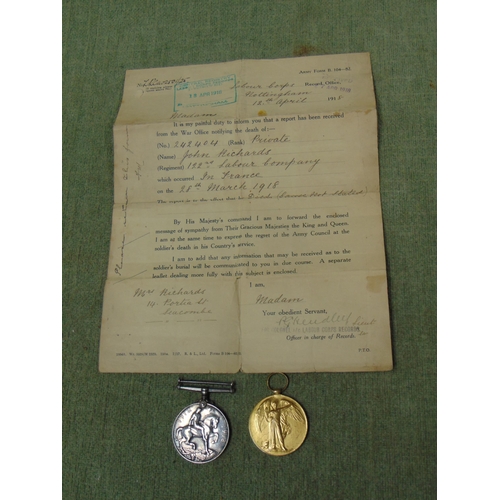 Army Form B. 104—82.
Labour Corps Record Office,
Nottingham
12th April 1918
Madam
It is my painful duty to inform you that a report has been received
from the War Office notifying the death of:—
(No.) 242404 (Rank) Private
(Name) John Richards
(Regiment) 192nd Labour Company
which occurred In France
on the 28th March 1918
The report is to the effect that he Died
By His Majesty's command I am to forward the enclosed
message of sympathy from Their Gracious Majesties the King and Queen.
I am at the same time to express the regret of the Army Council at the
soldier's death in his Country's service.
I am to add that any information that may be received as to the
soldier's burial will be communicated to you in due course. A separate
leaflet dealing more fully with this subject is enclosed.
I am,
Mrs Richards
Madam
14 Portia St
Your obedient Servant,
Officer in charge of Records.
P.T.O.